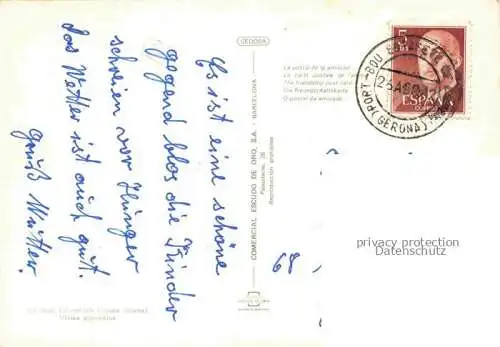 Es ist eine schöne
gegend blos die Kinder
schreien vor Hunger
das Wetter ist auch gut.
Gruß Mutter.
CEDOSA
COMERCIAL ESCUDO DE ORO, S.A. - BARCELONA
Palaudarias, 26
Reproducción prohibida
La postal de la amistad
La carte postale de l'amitié
The friendship post card
Die Freundschaftskarte
O postal da amizade
5
PTS
ESPAÑA
CORREOS
PORT-BOU
(GERONA)
68
privacy protection
Datenschutz